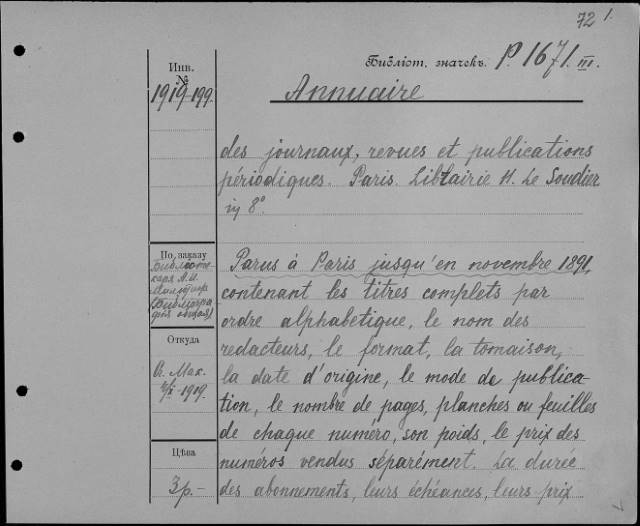 72 1.
Библіот. значекъ. P. 1671. III.
Инв.
№
1919-199.
Annuaire
des journaux, revues et publications
périodiques. Paris. Librairie H. Le Soudier
in 8°.
По заказу
Библіоте-
каря А.И.
(Библіогра-
фія общая)
Parus à Paris jusqu'en novembre 1891,
contenant les titres complets par
ordre alphabetique, le nom des
redacteurs, le format, la tomaison,
la date d'origine, le mode de publica-
tion, le nombre de pages, planches ou feuilles
de chaque numéro, son poids, le prix des
numéros vendus séparément. La durée
des abonnements, leurs échéances, leurs prix
Откуда
1919.
Цѣна
3 р.-